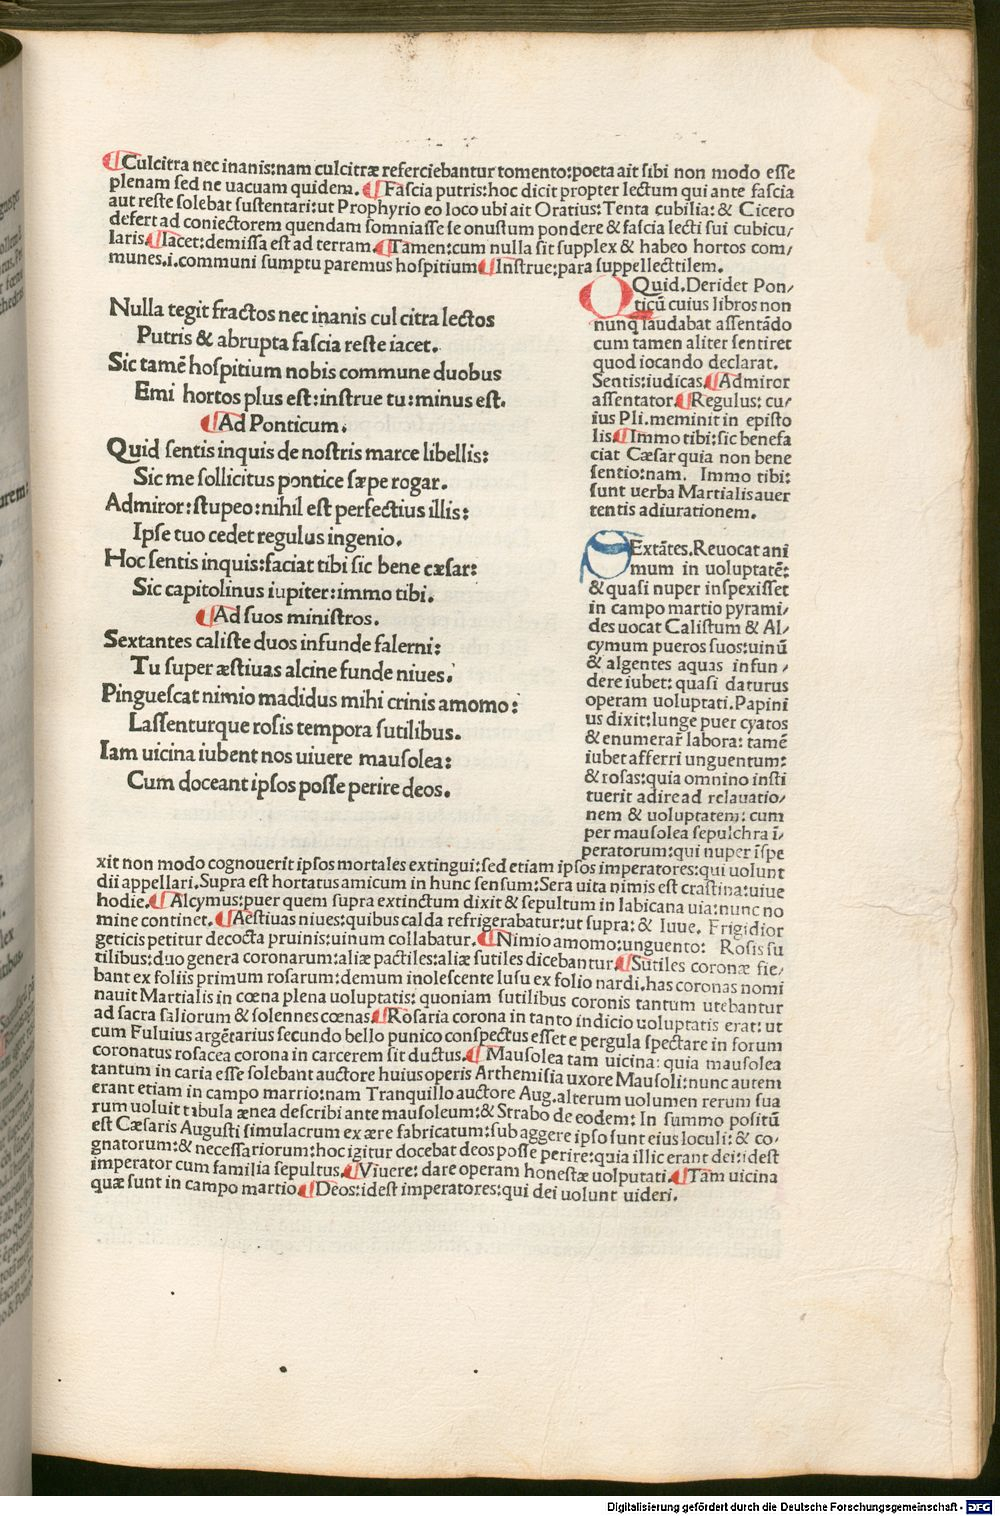 ¶Culcitra nec inanis:nam culcitræ referciebantur tomento:poeta ait sibi non modo esse
plenam sed ne uacuam quidem. ¶Fascia putris:hoc dicit propter lectum qui ante fascia
aut reste solebat sustentari:ut Prophyrio eo loco ubi ait Oratius:Tenta cubilia:& Cicero
defert ad coniectorem quendam somniasse se onustum pondere & fascia lecti sui cubicu/
laris.¶Iacet:demissa est ad terram.¶Tamen:cum nulla sit supplex & habeo hortos com/
munes.i.communi sumptu paremus hospitium¶Instrue:para suppellectilem.
Nulla tegit fractos nec inanis cul citra lectos
Putris & abrupta fascia reste iacet.
Sic tamē hospitium nobis commune duobus
Emi hortos plus est:instrue tu:minus est.
¶Ad Ponticum.
Quid sentis inquis de nostris marce libellis:
Sic me sollicitus pontice sæpe rogar.
Admiror:stupeo:nihil est perfectius illis:
Ipse tuo cedet regulus ingenio.
Hoc sentis inquis:faciat tibi sic bene cæsar:
Sic capitolinus iupiter:immo tibi.
¶Ad suos ministros.
Sextantes caliste duos infunde falerni:
Tu super æstiuas alcine funde niues.
Pinguescat nimio madidus mihi crinis amomo:
Lassenturque rosis tempora sutilibus.
Iam uicina iubent nos uiuere mausolea:
Cum doceant ipsos posse perire deos.
QQuid.Deridet Pon/
ticū cuius libros non
nunq̄ laudabat assentādo
cum tamen aliter sentiret
quod iocando declarat.
Sentis:iudicas.¶Admiror
assentator.¶Regulus: cu/
ius Pli.meminit in episto
lis.¶Immo tibi:sic benefa
ciat Cæsar quia non bene
sentio:nam. Immo tibi:
sunt uerba Martialis auer
tentis adiurationem.
SExtātes.Reuocat ani
mum in uoluptatē:
& quasi nuper inspexisset
in campo martio pyrami/
des uocat Calistum & Al/
cymum pueros suos:uinū
& algentes aquas infun/
dere iubet: quasi daturus
operam uoluptati.Papini
us dixit:Iunge puer cyatos
& enumerar̄ labora: tamē
iubet afferri unguentum:
& rosas:quia omnino insti
tuerit adire ad relauatio/
nem & uoluptatem: cum
per mausolea sepulchra ī/
peratorum:qui nuper īspe
xit non modo cognouerit ipsos mortales extingui:sed etiam ipsos imperatores:qui uolunt
dii appellari.Supra est hortatus amicum in hunc sensum:Sera uita nimis est crastina:uiue
hodie.¶Alcymus:puer quem supra extinctum dixit & sepultum in labicana uia:nunc no
mine continet.¶Aestiuas niues:quibus calda refrigerabatur:ut supra:& Iuue. Frigidior
geticis petitur decocta pruinis:uinum collabatur.¶Nimio amomo:unguento: Rosis su
tilibus:duo genera coronarum:aliæ pactiles:aliæ sutiles dicebantur.¶Sutiles coronæ fie/
bant ex foliis primum rosarum:demum inolescente lusu ex folio nardi.has coronas nomi
nauit Martialis in cœna plena uoluptatis: quoniam sutilibus coronis tantum utebantur
ad sacra saliorum & solennes cœnas.¶Rosaria corona in tanto indicio uoluptatis erat: ut
cum Fuluius argētarius secundo bello punico conspectus esset e pergula spectare in forum
coronatus rosacea corona in carcerem sit ductus.¶ Mausolea tam uicina: quia mausolea
tantum in caria esse solebant auctore huius operis Arthemisia uxore Mausoli:nunc autem
erant etiam in campo marrio:nam Tranquillo auctore Aug.alterum uolumen rerum sua
rum uoluit tabula ænea describi ante mausoleum:& Strabo de eodem: In summo positū
est Cæsaris Augusti simulacrum ex ære fabricatum:sub aggere ipso sunt eius loculi: & co/
gnatorum:& necessariorum:hoc igitur docebat deos posse perire:quia illic erant dei:idest
imperator cum familia sepultus.¶Viuere: dare operam honestæ uolputati.¶Tam uicina
quæ sunt in campo martio.¶Deos:idest imperatores:qui dei uolunt uideri.
Digitalisierung gefördert durch die Deutsche Forschungsgemeinschaft - DFG